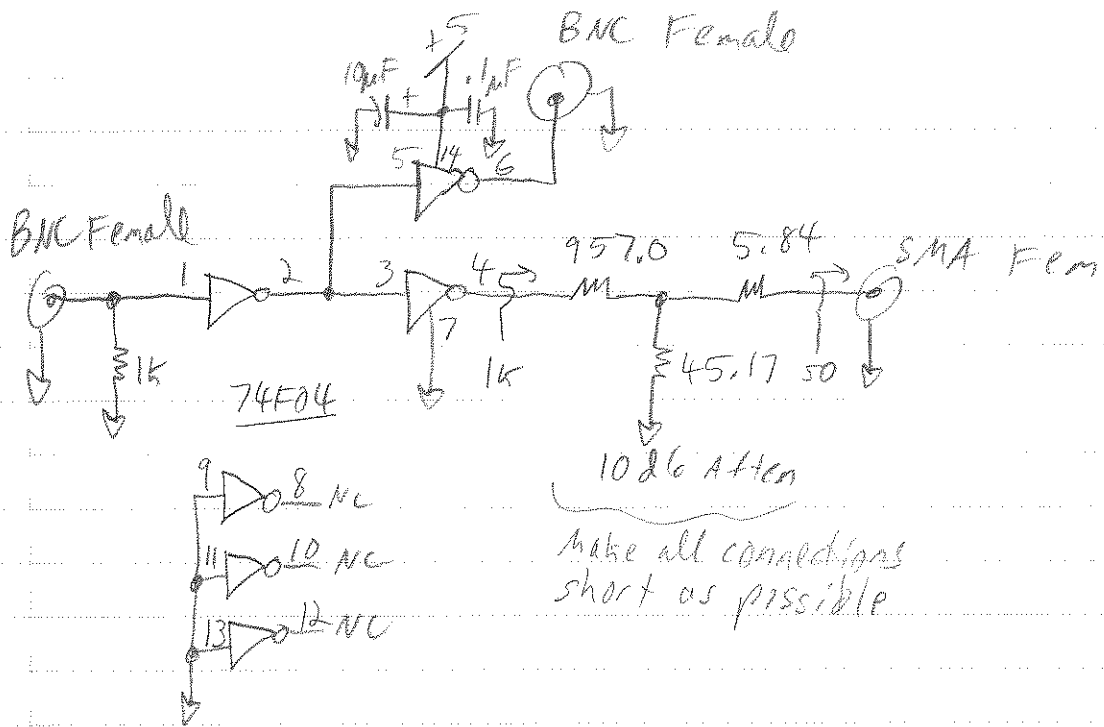 +5
BNC Female
10µF
.1µF
+
5
14
6
BNC Female
1
2
3
4
957.0
5.84
SMA Fem
7
1K
1K
45.17
50
74F04
10 db Atten
make all connections
short as possible
9
8
NC
11
10
NC
13
12
NC